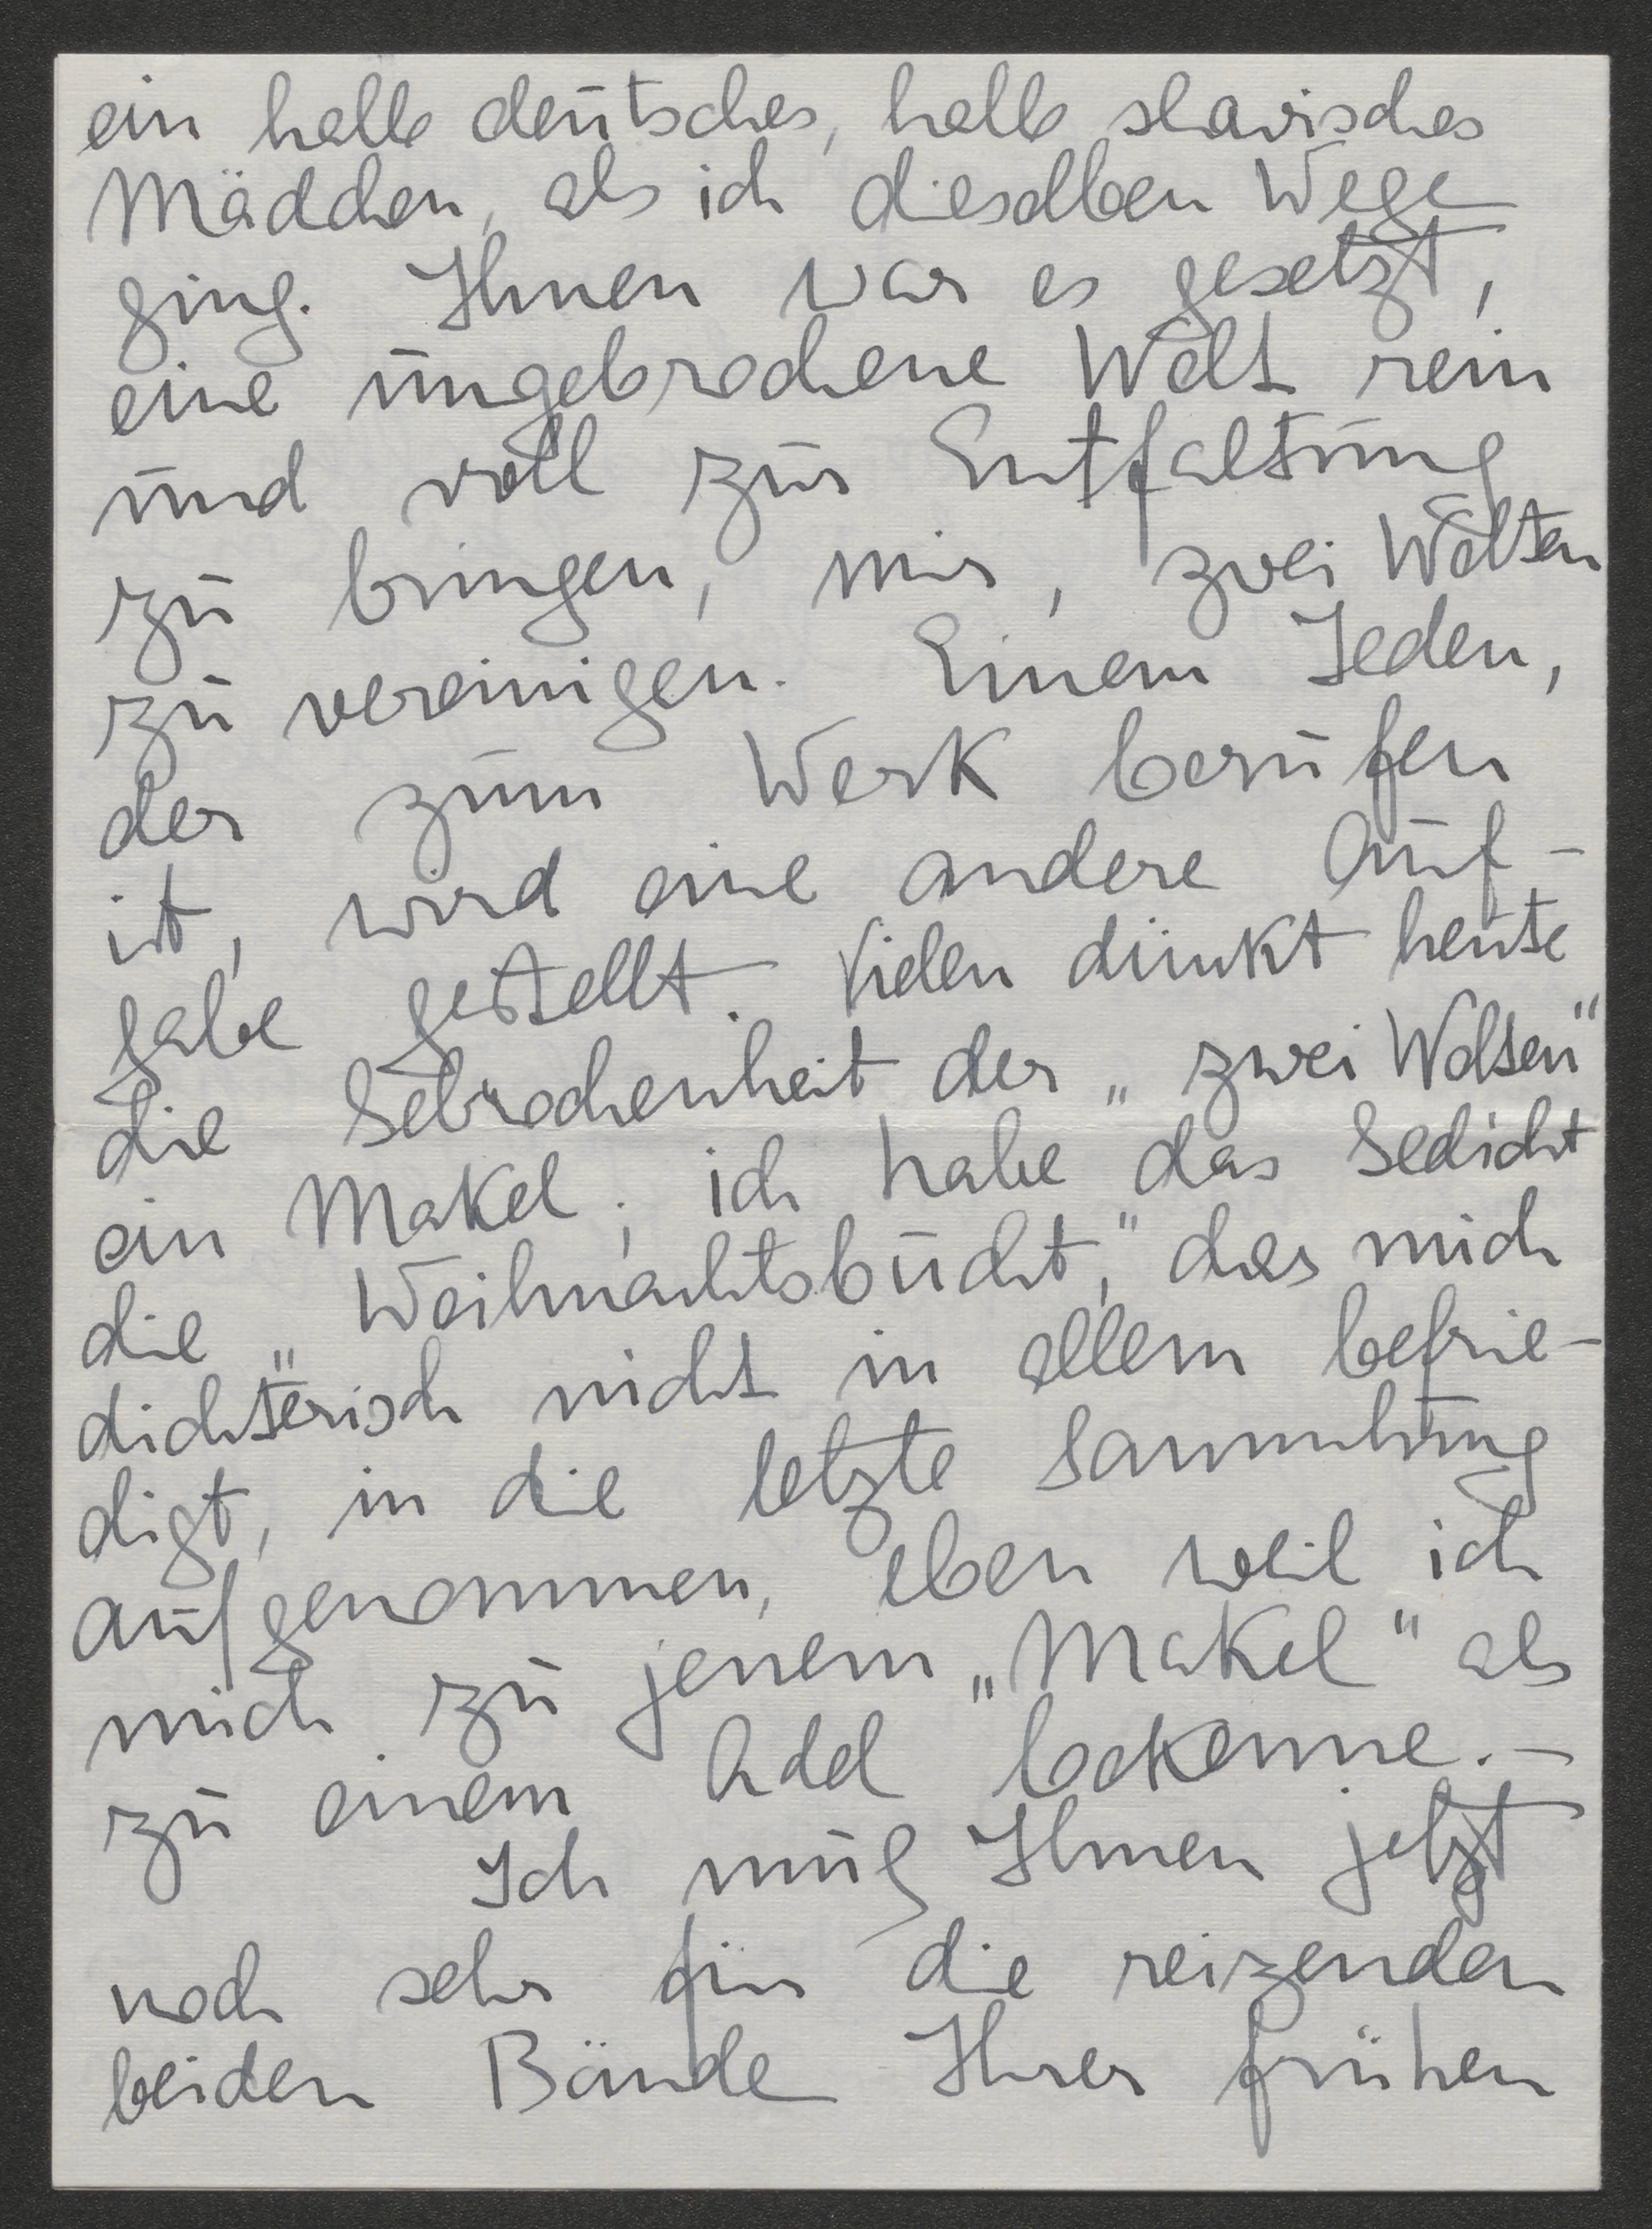 ein halb deutsches, halb slavisches
Mädchen, als ich dieselben Wege
ging. Ihnen war es gesetzt,
eine ungebrochene Welt rein
und voll zur Entfaltung
zu bringen, mir, zwei Welten
zu vereinigen. Einem Jeden,
der zum Werk berufen
ist, wird eine andere Auf-
gabe gestellt. Vielen dünkt heute
die Gebrochenheit der „zwei Welten"
ein Makel; ich habe das Gedicht
die „Weihnachtsbucht," das mich
dichterisch nicht in allem befrie-
digt, in die letzte Sammlung
aufgenommen, eben weil ich
mich zu jenem „Makel" als
zu einem Adel bekenne. –
Ich muß Ihnen jetzt
noch sehr für die reizenden
beiden Bände Ihrer frühen